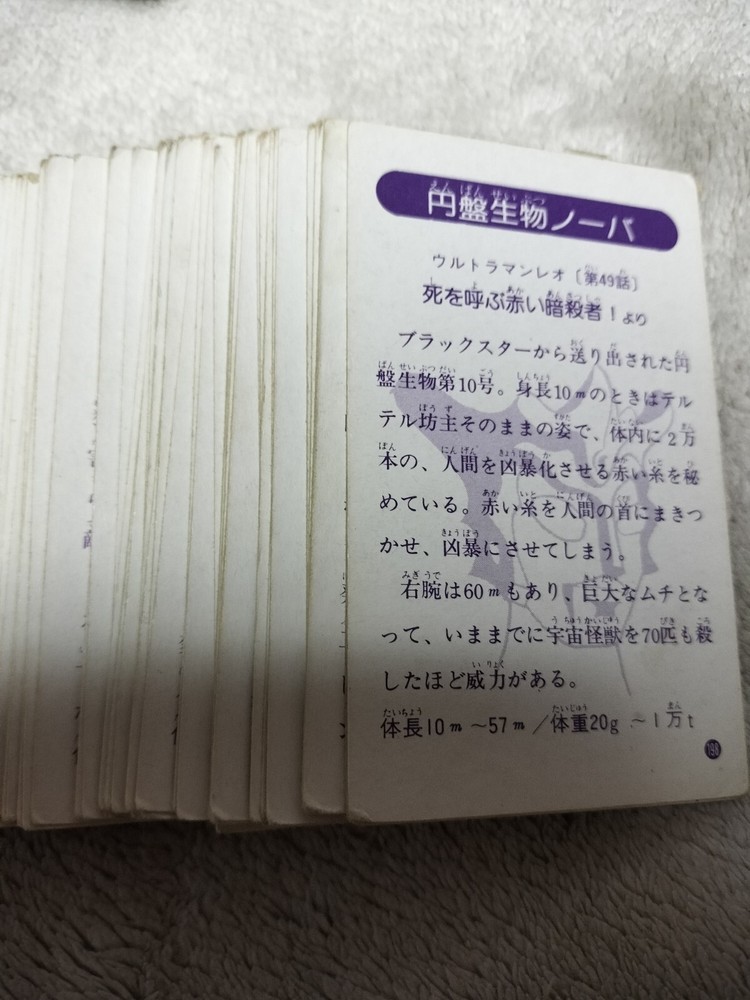 円盤生物ノーバ
ウルトラマンレオ〔第49話〕
死を呼ぶ赤い暗殺者！より
ブラックスターから送り出された円
盤生物第10号。身長10mのときはテル
テル坊主そのままの姿で、体内に2万
本の、人間を凶暴化させる赤い糸を秘
めている。赤い糸を人間の首にまきつ
かせ、凶暴にさせてしまう。
右腕は60mもあり、巨大なムチとな
って、いままでに宇宙怪獣を70匹も殺
したほど威力がある。
体長10m～57m/体重20g～1万t